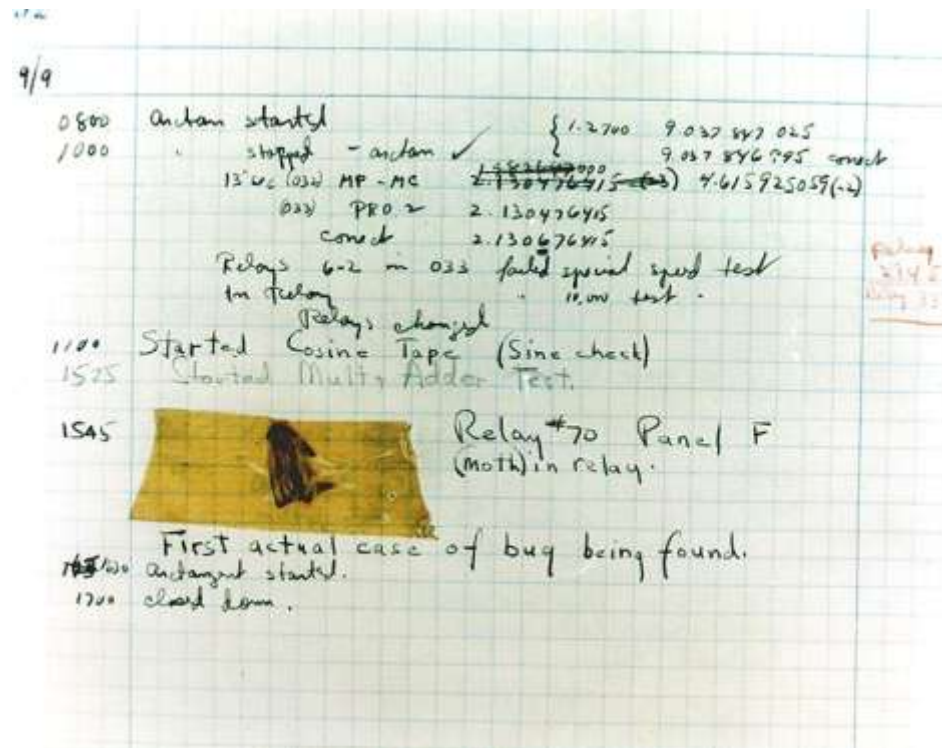 9/9
0800 Antan started
1000 " stopped - antan ✓ { 1.2700 9.037 847 025
9.037 846 995 conect
13" uc (032) MP - MC 2.130476415 (-3) 4.615925059(-2)
(033) PRO 2 2.130476415
conect 2.130676415
Relays 6-2 in 033 failed special speed test
In Relay " 10,000 test .
Relays changed
1100 Started Cosine Tape (Sine check)
1525 Started Mult + Adder Test.
1545 Relay #70 Panel F
(moth) in relay.
First actual case of bug being found.
1630 Antangent started.
1700 closed down.
Relay